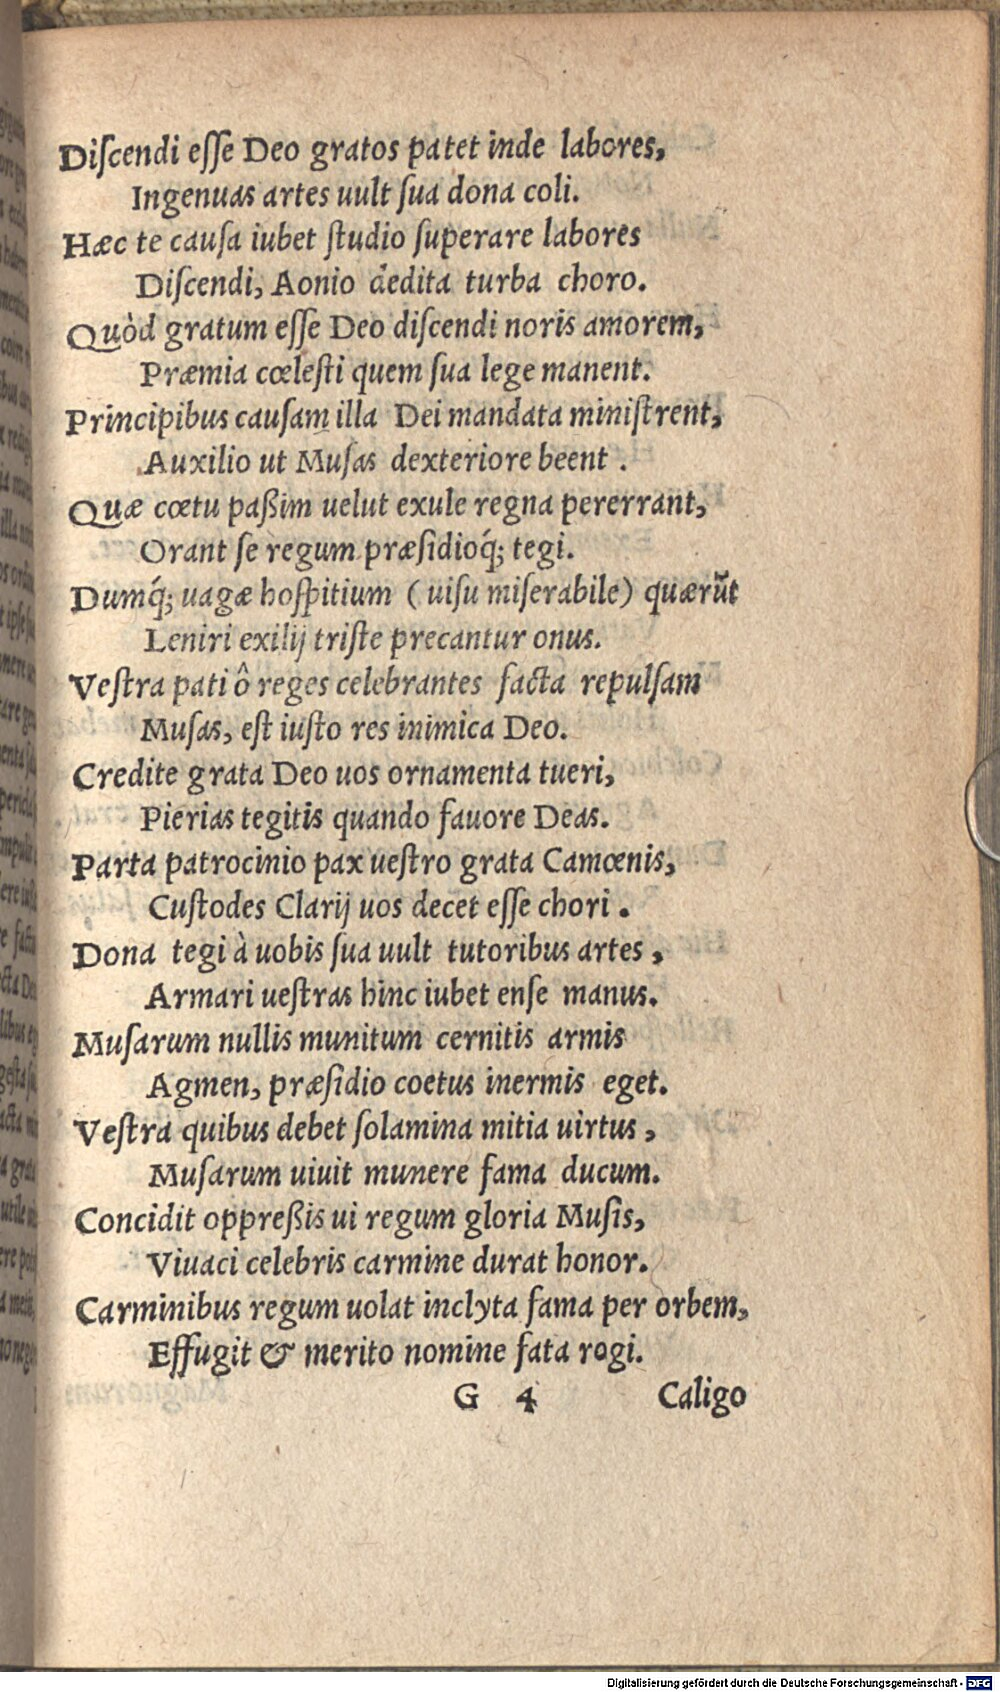 Diſcendi eſſe Deo gratos patet inde labores,
Ingenuas artes uult ſua dona coli.
Hæc te cauſa iubet ſtudio ſuperare labores
Diſcendi, Aonio dedita turba choro.
Quòd gratum eſſe Deo diſcendi noris amorem,
Præmia cœleſti quem ſua lege manent.
Principibus cauſam illa Dei mandata miniſtrent,
Auxilio ut Muſas dexteriore beent .
Quæ cœtu paßim uelut exule regna pererrant,
Orant ſe regum præſidioq́; tegi.
Dumq́; uagæ hoſpitium ( uiſu miſerabile) quærũt
Leniri exilij triſte precantur onus.
Veſtra pati ô reges celebrantes facta repulſam
Muſas, eſt iuſto res inimica Deo.
Credite grata Deo uos ornamenta tueri,
Pierias tegitis quando fauore Deas.
Parta patrocinio pax ueſtro grata Camœnis,
Cuſtodes Clarij uos decet eſſe chori .
Dona tegi à uobis ſua uult tutoribus artes ,
Armari ueſtras hinc iubet enſe manus.
Muſarum nullis munitum cernitis armis
Agmen, præſidio coetus inermis eget.
Veſtra quibus debet ſolamina mitia uirtus ,
Muſarum uiuit munere fama ducum.
Concidit oppreßis ui regum gloria Muſis,
Viuaci celebris carmine durat honor.
Carminibus regum uolat inclyta fama per orbem,
Effugit & merito nomine fata rogi.
G 4 Caligo
Digitalisierung gefördert durch die Deutsche Forschungsgemeinschaft - DFG